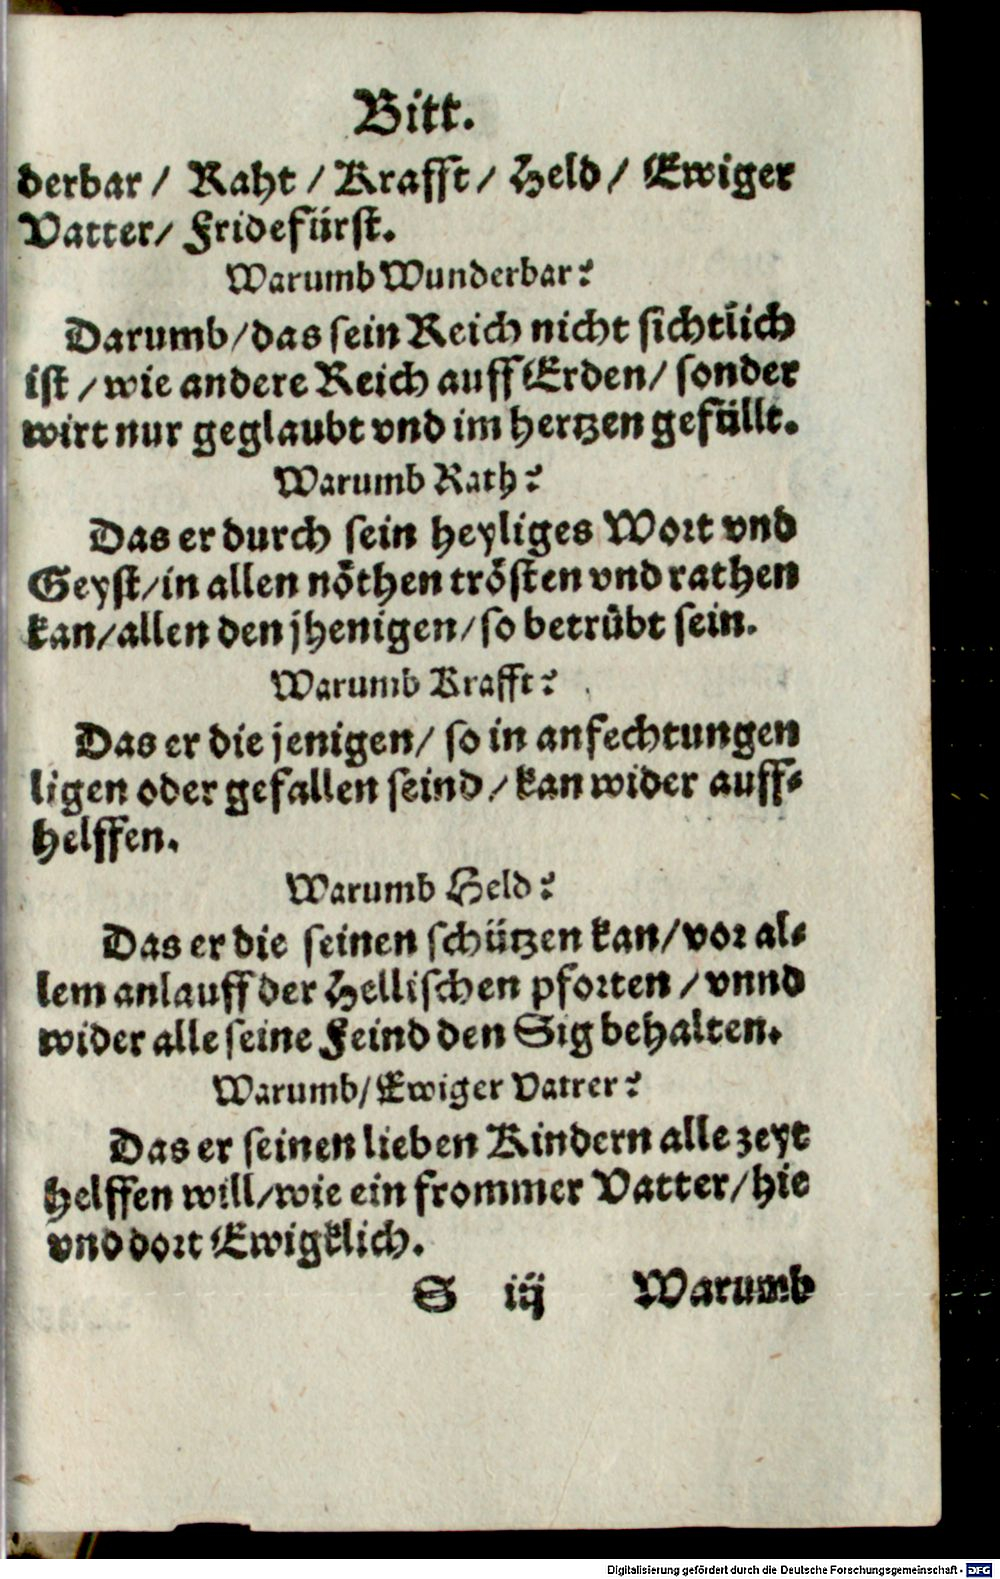 Bitt.
derbar / Raht / Krafft / Held / Ewiger
Vatter / Fridefürst.
Warumb Wunderbar?
Darumb / das sein Reich nicht sichtlich
ist / wie andere Reich auff Erden / sonder
wirt nur geglaubt vnd im hertzen gefüllt.
Warumb Rath?
Das er durch sein heyliges Wort vnd
Geyst / in allen nöthen trösten vnd rathen
kan / allen den jhenigen / so betrübt sein.
Warumb Krafft?
Das er die jenigen / so in anfechtungen
ligen oder gefallen seind / kan wider auff-
helffen.
Warumb Held?
Das er die seinen schützen kan / vor al-
lem anlauff der Hellischen pforten / vnnd
wider alle seine Feind den Sig behalten.
Warumb / Ewiger Vatrer?
Das er seinen lieben Kindern alle zeyt
helffen will / wie ein frommer Vatter / hie
vnd dort Ewigklich.
S iij Warumb
Digitalisierung gefördert durch die Deutsche Forschungsgemeinschaft - DFG